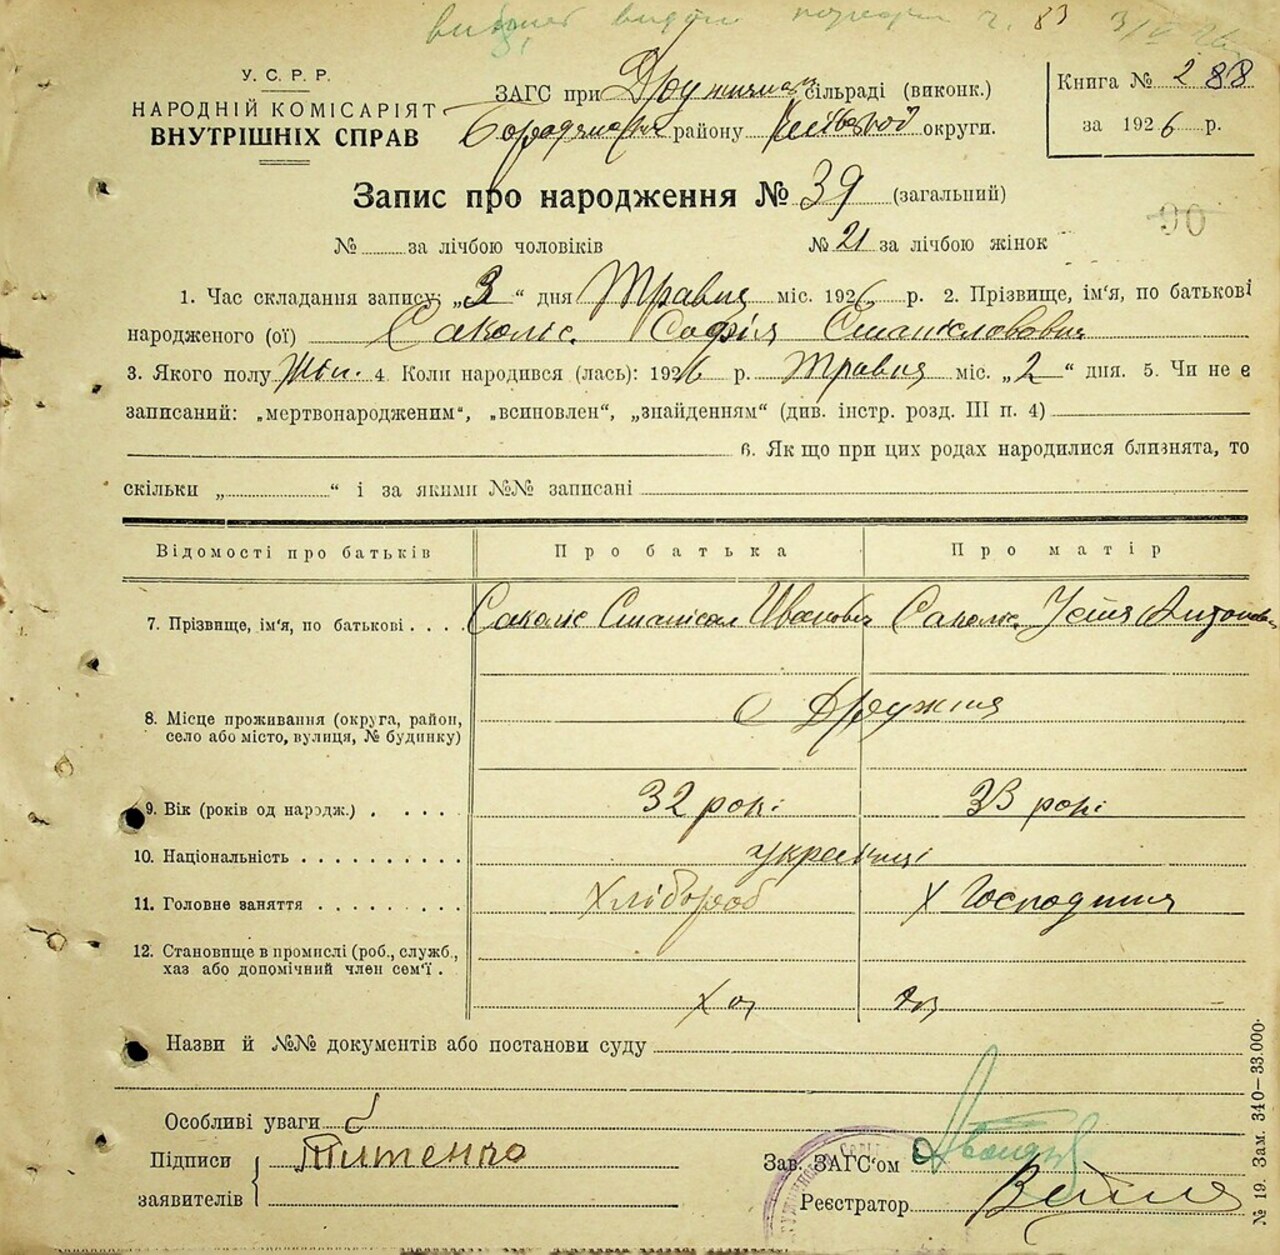 видати ч. 83
У. С. Р. Р.
НАРОДНІЙ КОМІСАРІЯТ
ВНУТРІШНІХ СПРАВ
ЗАГС при сільраді (виконк.)
району округи.
Книга № 288
за 1926 р.
Запис про народження № 39 (загальний)
90
№ за лічбою чоловіків № 21 за лічбою жінок
1. Час складання запису: „3“ дня Травня міс. 1926 р. 2. Прізвище, ім'я, по батькові
народженого (ої) Саколіс Софія Станіславовна
3. Якого полу Жін. 4. Коли народився (лась): 1926 р. Травня міс. „2“ дня. 5. Чи не є
записаний: „мертвонародженим“, „всиновлен“, „знайденням“ (див. інстр. розд. III п. 4)
6. Як що при цих родах народилися близнята, то
скільки „ “ і за якими №№ записані
Відомості про батьків Про батька Про матір
7. Прізвище, ім'я, по батькові . . . . Саколіс Станіслав Иванович Саколіс Устя Антоновна
8. Місце проживання (округа, район,
село або місто, вулиця, № будинку)
с Дружня
9. Вік (років од народж.) . . . . 32 рокі 33 рокі
10. Національність . . . . . . . . . . українці
11. Головне заняття . . . . . . . . . Хлібороб Х Господиня
12. Становище в промислі (роб., служб.,
хаз або допомічний член сем'ї .
Хоз
Назви й №№ документів або постанови суду
Особливі уваги
Підписи
заявителів
Титенко
Зав. ЗАГС'ом
Реєстратор
№ 19. Зам. 340—33.000.